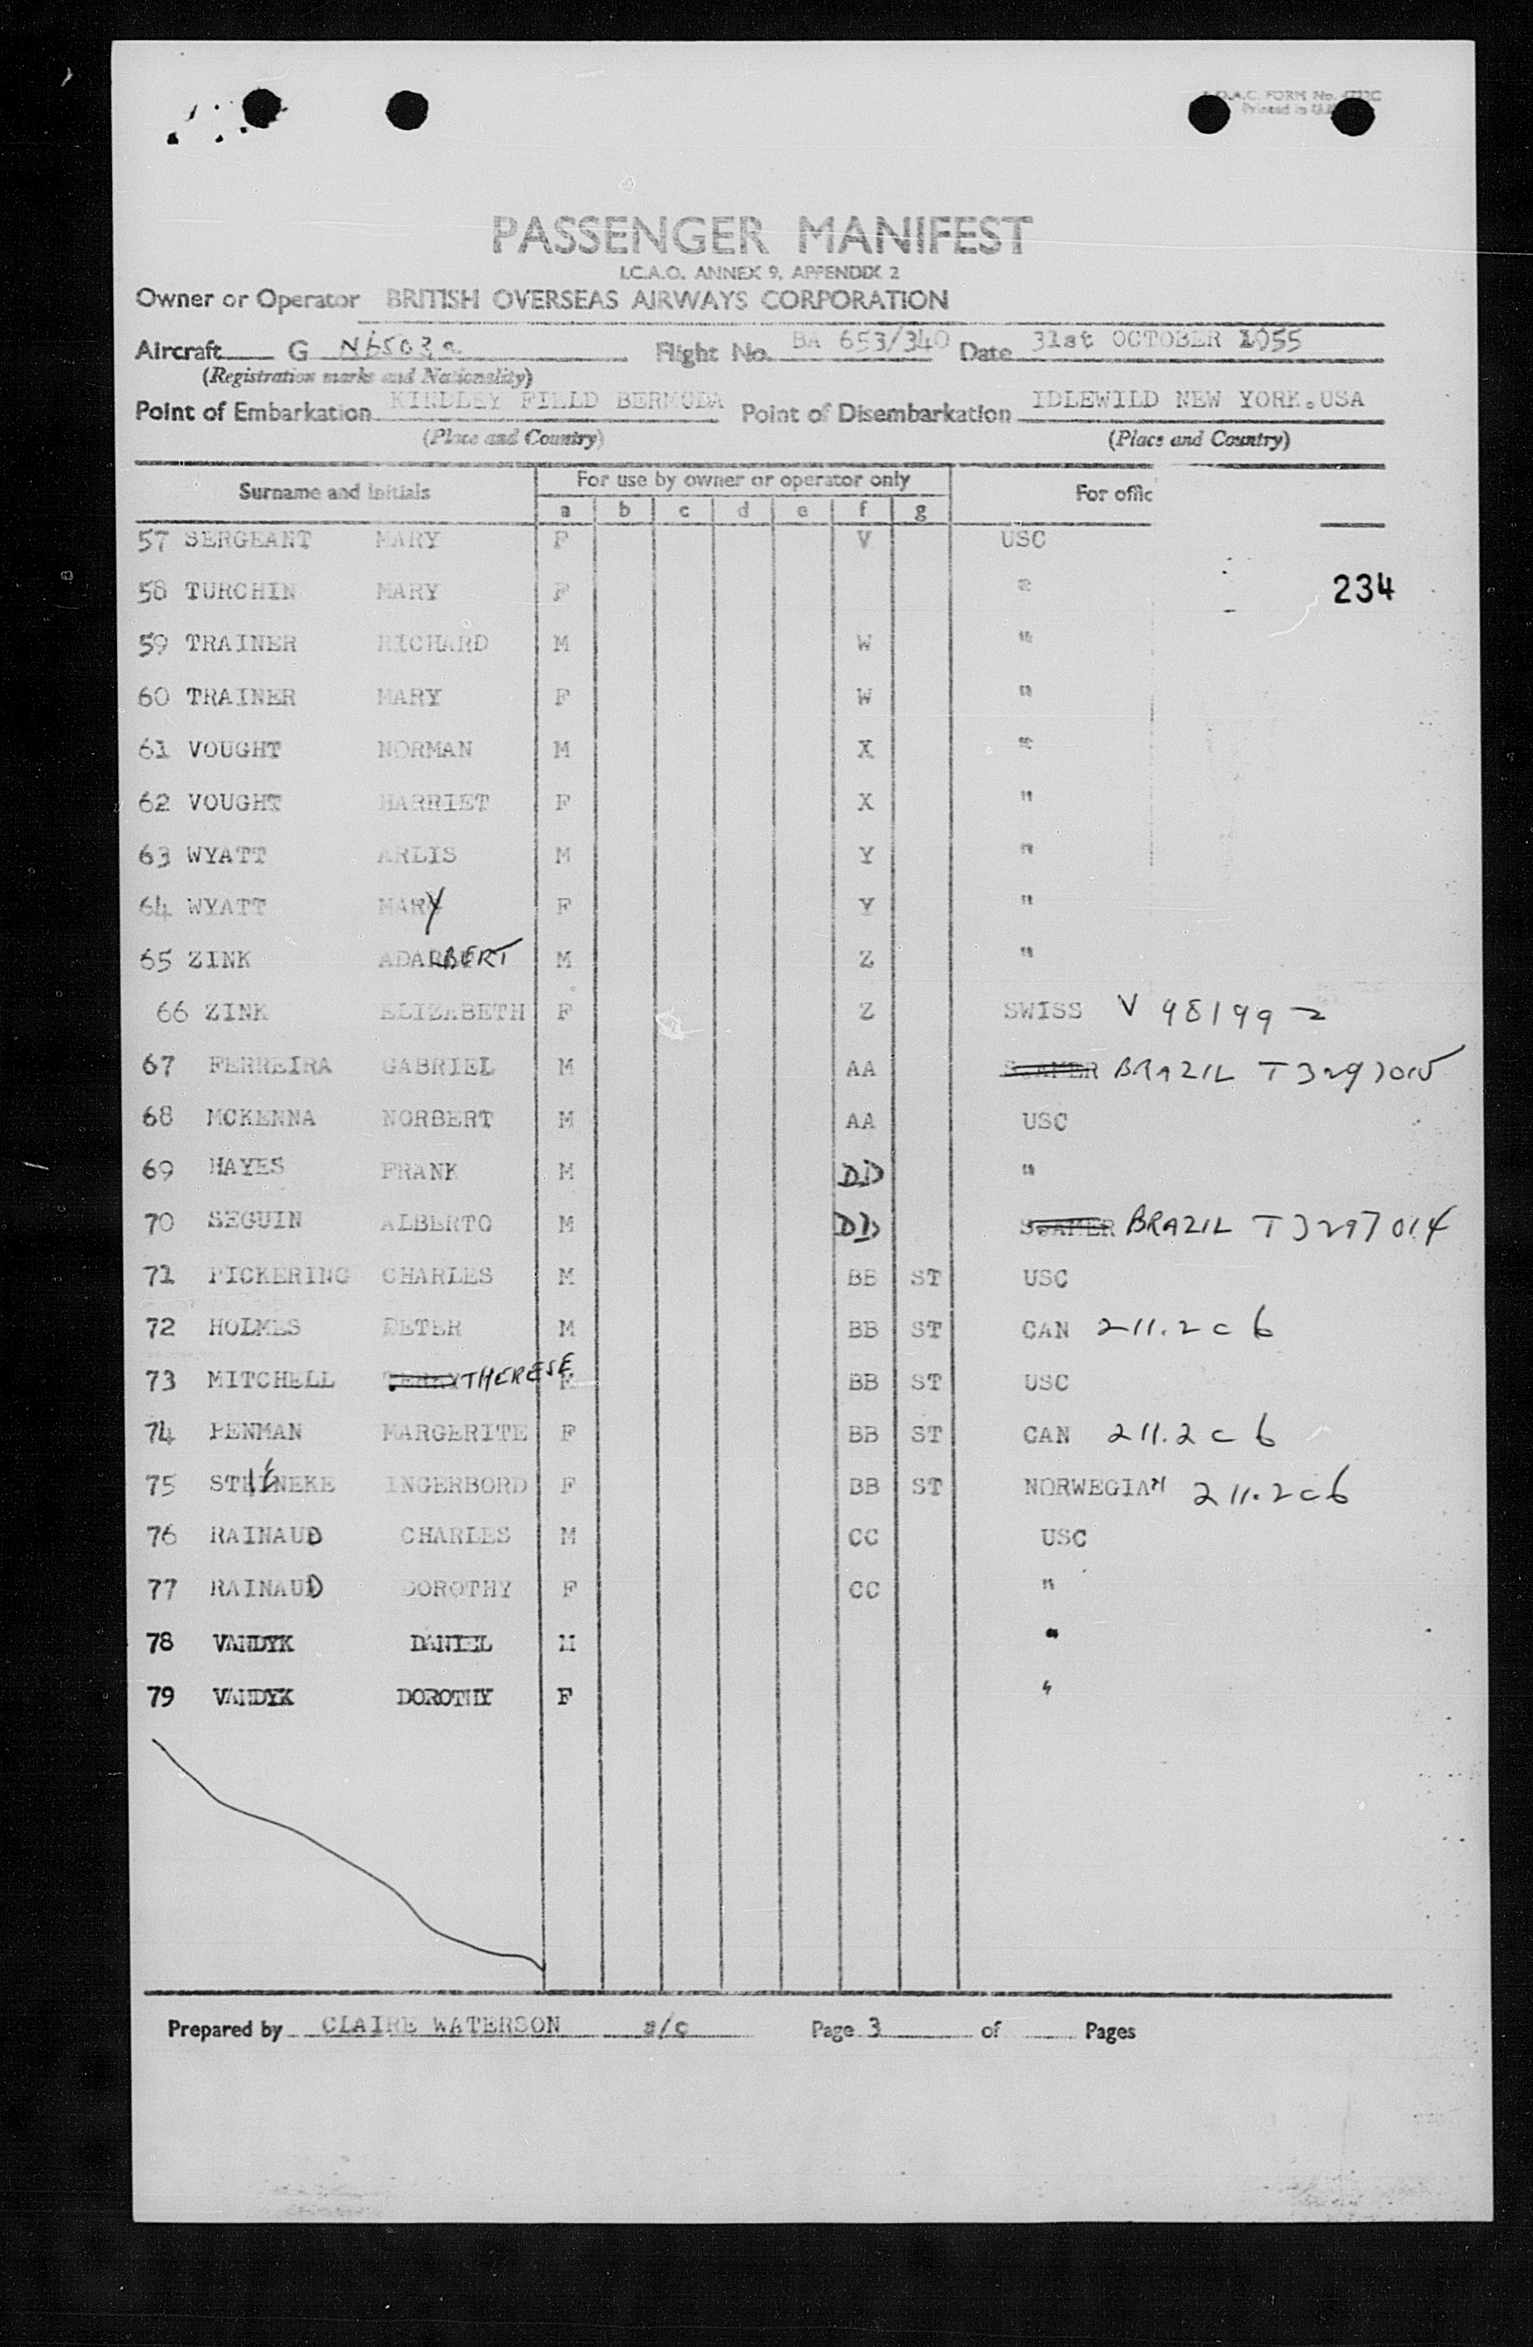 B.O.A.C. FORM No.
Printed in
PASSENGER MANIFEST
I.C.A.O. ANNEX 9, APPENDIX 2
Owner or Operator BRITISH OVERSEAS AIRWAYS CORPORATION
Aircraft G Flight No. BA 653/340 Date 31st OCTOBER 1955
(Registration marks and Nationality)
Point of Embarkation KINDLEY FIELD BERMUDA Point of Disembarkation IDLEWILD NEW YORK.USA
(Place and Country) (Place and Country)
Surname and Initials For use by owner or operator only For offic
a b c d e f g
57 SERGEANT MARY F V USC
58 TURCHIN MARY F " 234
59 TRAINER RICHARD M W "
60 TRAINER MARY F W "
61 VOUGHT NORMAN M X "
62 VOUGHT HARRIET F X "
63 WYATT ARLIS M Y "
64 WYATT MARY F Y "
65 ZINK ADALBERT M Z "
66 ZINK ELIZABETH F Z SWISS V 981992
67 FERREIRA GABRIEL M AA S.AMER BRAZIL T3297015
68 MCKENNA NORBERT M AA USC
69 HAYES FRANK M DD "
70 SEGUIN ALBERTO M DD S.AMER BRAZIL T3297014
71 PICKERING CHARLES M BB ST USC
72 HOLMES DETER M BB ST CAN 211.2c6
73 MITCHELL TERRY THERESE F BB ST USC
74 PENMAN MARGERITE F BB ST CAN 211.2c6
75 STEINEKE INGERBORD F BB ST NORWEGIAN 211.2c6
76 RAINAUD CHARLES M CC USC
77 RAINAUD DOROTHY F CC "
78 VANDYK DANIEL M "
79 VANDYK DOROTHY F "
Prepared by CLAIRE WATERSON a/c Page 3 of Pages